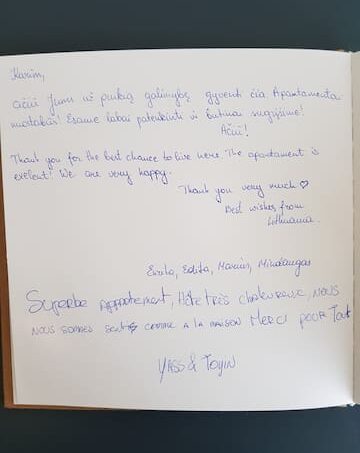 Karim,
Ačiū Jums už puikią galimybę gyventi čia Apartamentai
nuostabūs! Esame labai patenkinti ir sugrįšime!
Ačiū!
Thank you for the best chance to live here. The apartament is
exelent! We are very happy.
Thank you very much ♡
Best wishes from
Lithuania
Edita, Marius, Mindaugas
Superbe appartement, Hôte très chaleureux, nous
nous sommes senti comme a la maison Merci pour Tout
Yass & Toyin